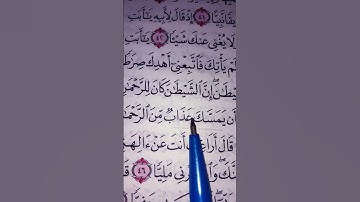 يقًا نَّبِيًّا ٤١ إِذْ قَالَ لِأَبِيهِ يَٰٓأَبَتِ
لَا يُغْنِى عَنكَ شَيْـًٔا ٤٢ يَٰٓأَبَتِ
لَمْ يَأْتِكَ فَٱتَّبِعْنِىٓ أَهْدِكَ صِرَٰطً
يْطَٰنَ إِنَّ ٱلشَّيْطَٰنَ كَانَ لِلرَّحْمَٰنِ
أَن يَمَسَّكَ عَذَابٌ مِّنَ ٱلرَّحْمَٰنِ
قَالَ أَرَاغِبٌ أَنتَ عَنْ ءَالِهَتِى
نَّكَ وَٱهْجُرْنِى مَلِيًّا ٤٦